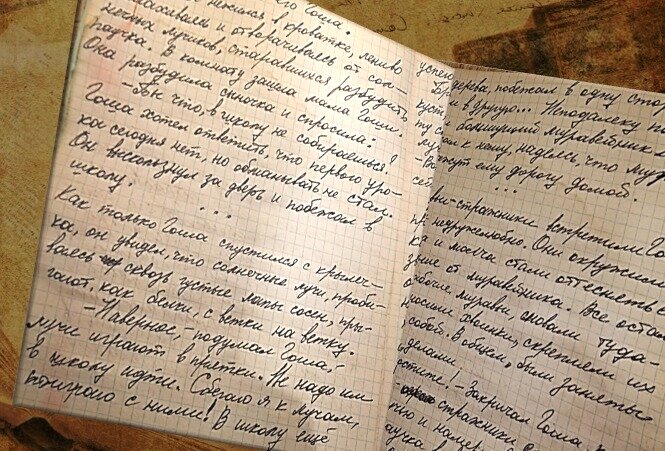 нежился в кроватке, лениво
и отворачиваясь от сол-
нечных лучиков, старавшихся разбудить
паучка. В комнату зашла мама Гоши.
Она разбудила сыночка и спросила:
-Ты что, в школу не собираешься?
Гоша хотел ответить, что первого уро-
ка сегодня нет, но обманывать не стал.
Он выскользнул за дверь и побежал в
школу.
...
Как только Гоша спустился с крылеч-
ка, он увидел, что солнечные лучи, проби-
ваясь сквозь густые лапы сосен, пры-
гают, как белки, с ветки на ветку.
-Наверное,-подумал Гоша,-
лучи играют в прятки. Не надо им
в школу идти. Сбегаю я к лучам,
поиграю с ними! В школу ещё
успею
дерева, побежал в одну стор
и в другую... Неподалеку
большущий муравейник
к нему, надеясь, что мур
ему дорогу домой.
...
-стражники встретили Го
недружелюбно. Они окружили
ка и молча стали оттеснять
от муравейника. Все остал
муравьи, сновали туда-
хвоинки, скрепляли их
собой. В общем, были заняты
делами.
-Закричал Гоша
стражники